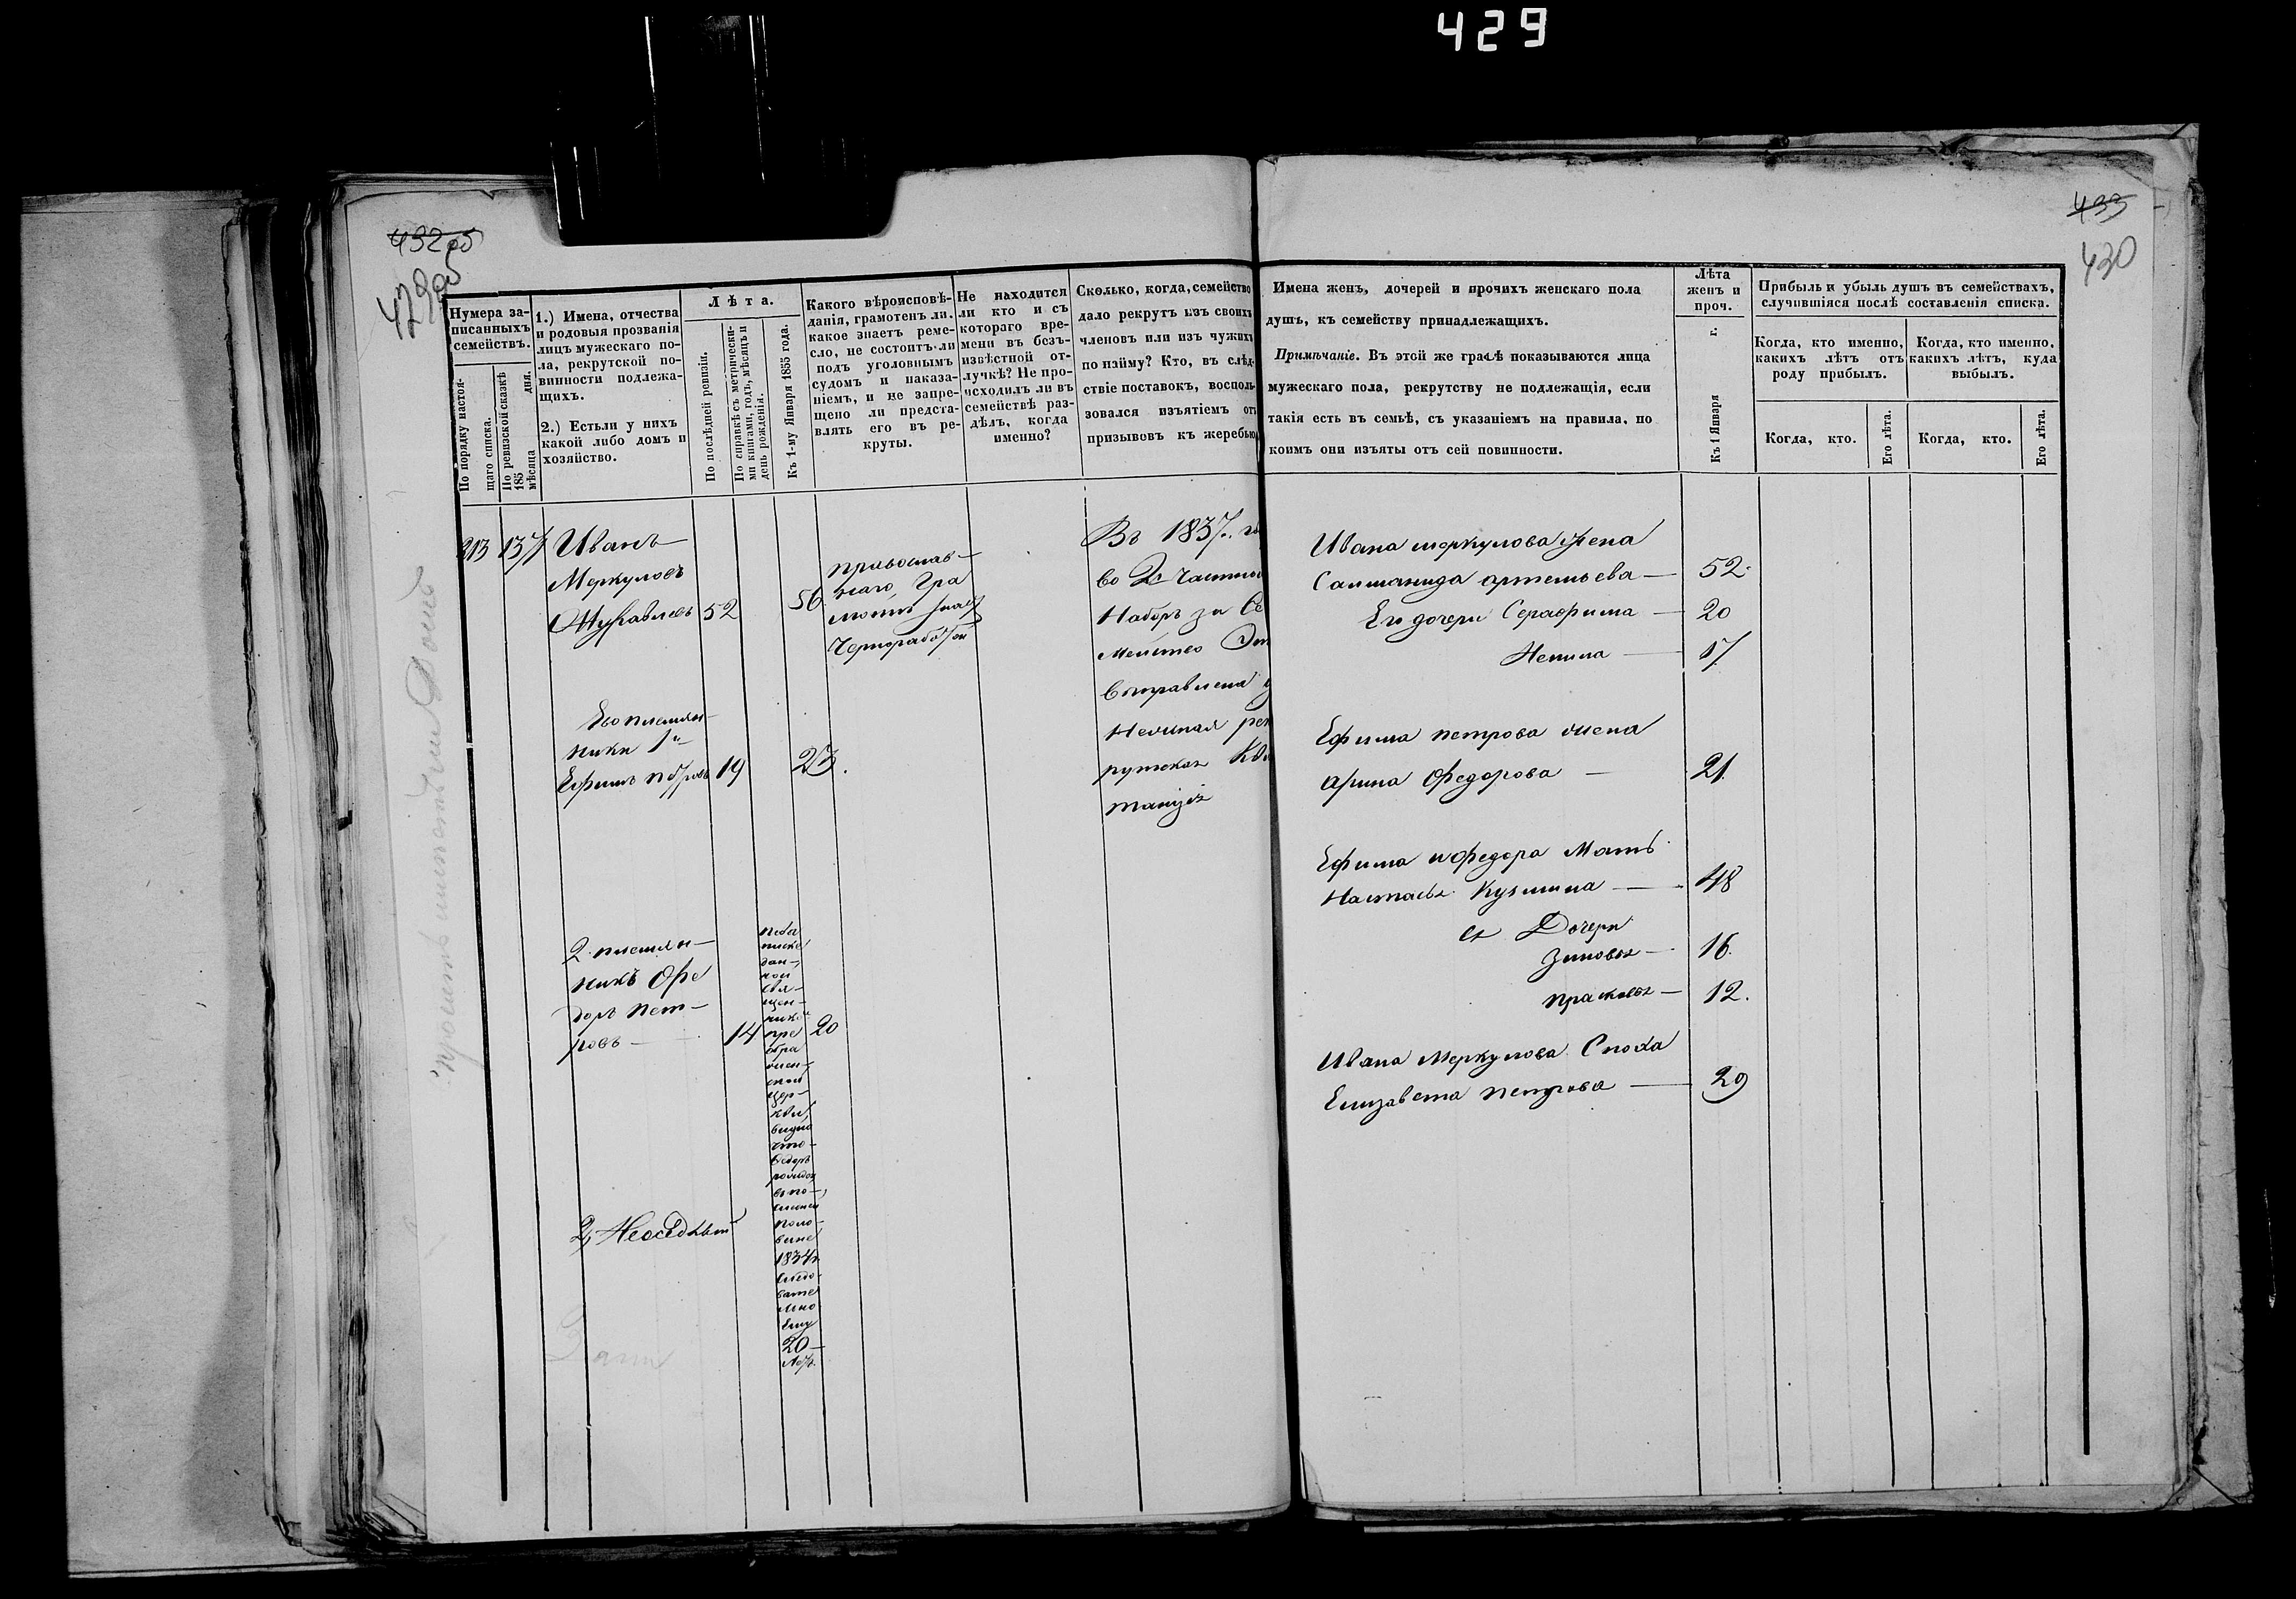 429
432 об
429 об
Нумера за-
писанныхъ
семействъ.
По порядку настоя-
щаго списка.
По ревизской сказкѣ
185
мѣсяца дня.
1.) Имена, отчества
и родовыя прозванія
лицъ мужескаго по-
ла, рекрутской по-
винности подлежа-
щихъ.
2.) Естьли у нихъ
какой либо домъ и
хозяйство.
Лѣта.
По послѣдней ревизіи.
По справкѣ съ метрически-
ми книгами, годъ, мѣсяцъ и
день рожденія.
Къ 1-му Января 1855 года.
Какого вѣроисповѣ-
данія, грамотенъ ли,
какое знаетъ реме-
сло, не состоитъ-ли
подъ уголовнымъ
судомъ и наказа-
ніемъ, и не запре-
щено ли предста-
влять его въ ре-
круты.
Не находится
ли кто и съ
котораго вре-
мени въ безъ-
извѣстной от-
лучкѣ? Не про-
исходилъ ли въ
семействѣ раз-
дѣлъ, когда
именно?
Сколько, когда, семейство
дало рекрутъ изъ своихъ
членовъ или изъ чужихъ
по найму? Кто, въ слѣд-
ствіе поставокъ, восполь-
зовался изъятіемъ отъ
призывовъ къ жеребью
213 137 Иванъ
Меркуловъ
Журавлевъ 52 56
православ-
наго, Гра
мотѣ знаетъ
Чернорабочій
Въ 1837. го
во 2й частной
Наборъ за Се
мейство
Нелиная рек
рутская Кви
танція
Его племян-
ники 1й
Ефимъ Петровъ 19 23.
2. племян-
никъ Фе
доръ Пет-
ровъ — 14 20
дан-
ной
свя-
щен-
нико
пре
обра
жен-
ской
цер-
кви,
видно
что
Федоръ
поло-
вине
1834 г
следо-
вате
льно
ему
20 —
летъ.
2, Неоседлый
433
430
Имена женъ, дочерей и прочихъ женскаго пола
душъ, къ семейству принадлежащихъ.
Примѣчаніе. Въ этой же графѣ показываются лица
мужескаго пола, рекрутству не подлежащія, если
такія есть въ семьѣ, съ указаніемъ на правила, по
коимъ они изъяты отъ сей повинности.
Лѣта
женъ и
проч.
Къ 1 Января г.
Прибыль и убыль душъ въ семействахъ,
случившіяся послѣ составленія списка.
Когда, кто именно,
какихъ лѣтъ отъ
роду прибылъ.
Когда, кто именно,
какихъ лѣтъ, куда
выбылъ.
Когда, кто.
Его лѣта.
Когда, кто.
Его лѣта.
Ивана Меркулова Жена
Саламанида Артемьева — 52.
Ея дочери Серафима — 20
Ненила — 17
Ефима Петрова жена
Арина Федорова — 21.
Ефима и Федора Мать
Настасья Кузмина — 48
ея Дочери
Зиновья — 16.
Прасковья — 12.
Ивана Меркулова Сноха
Елизавета Петрова — 29